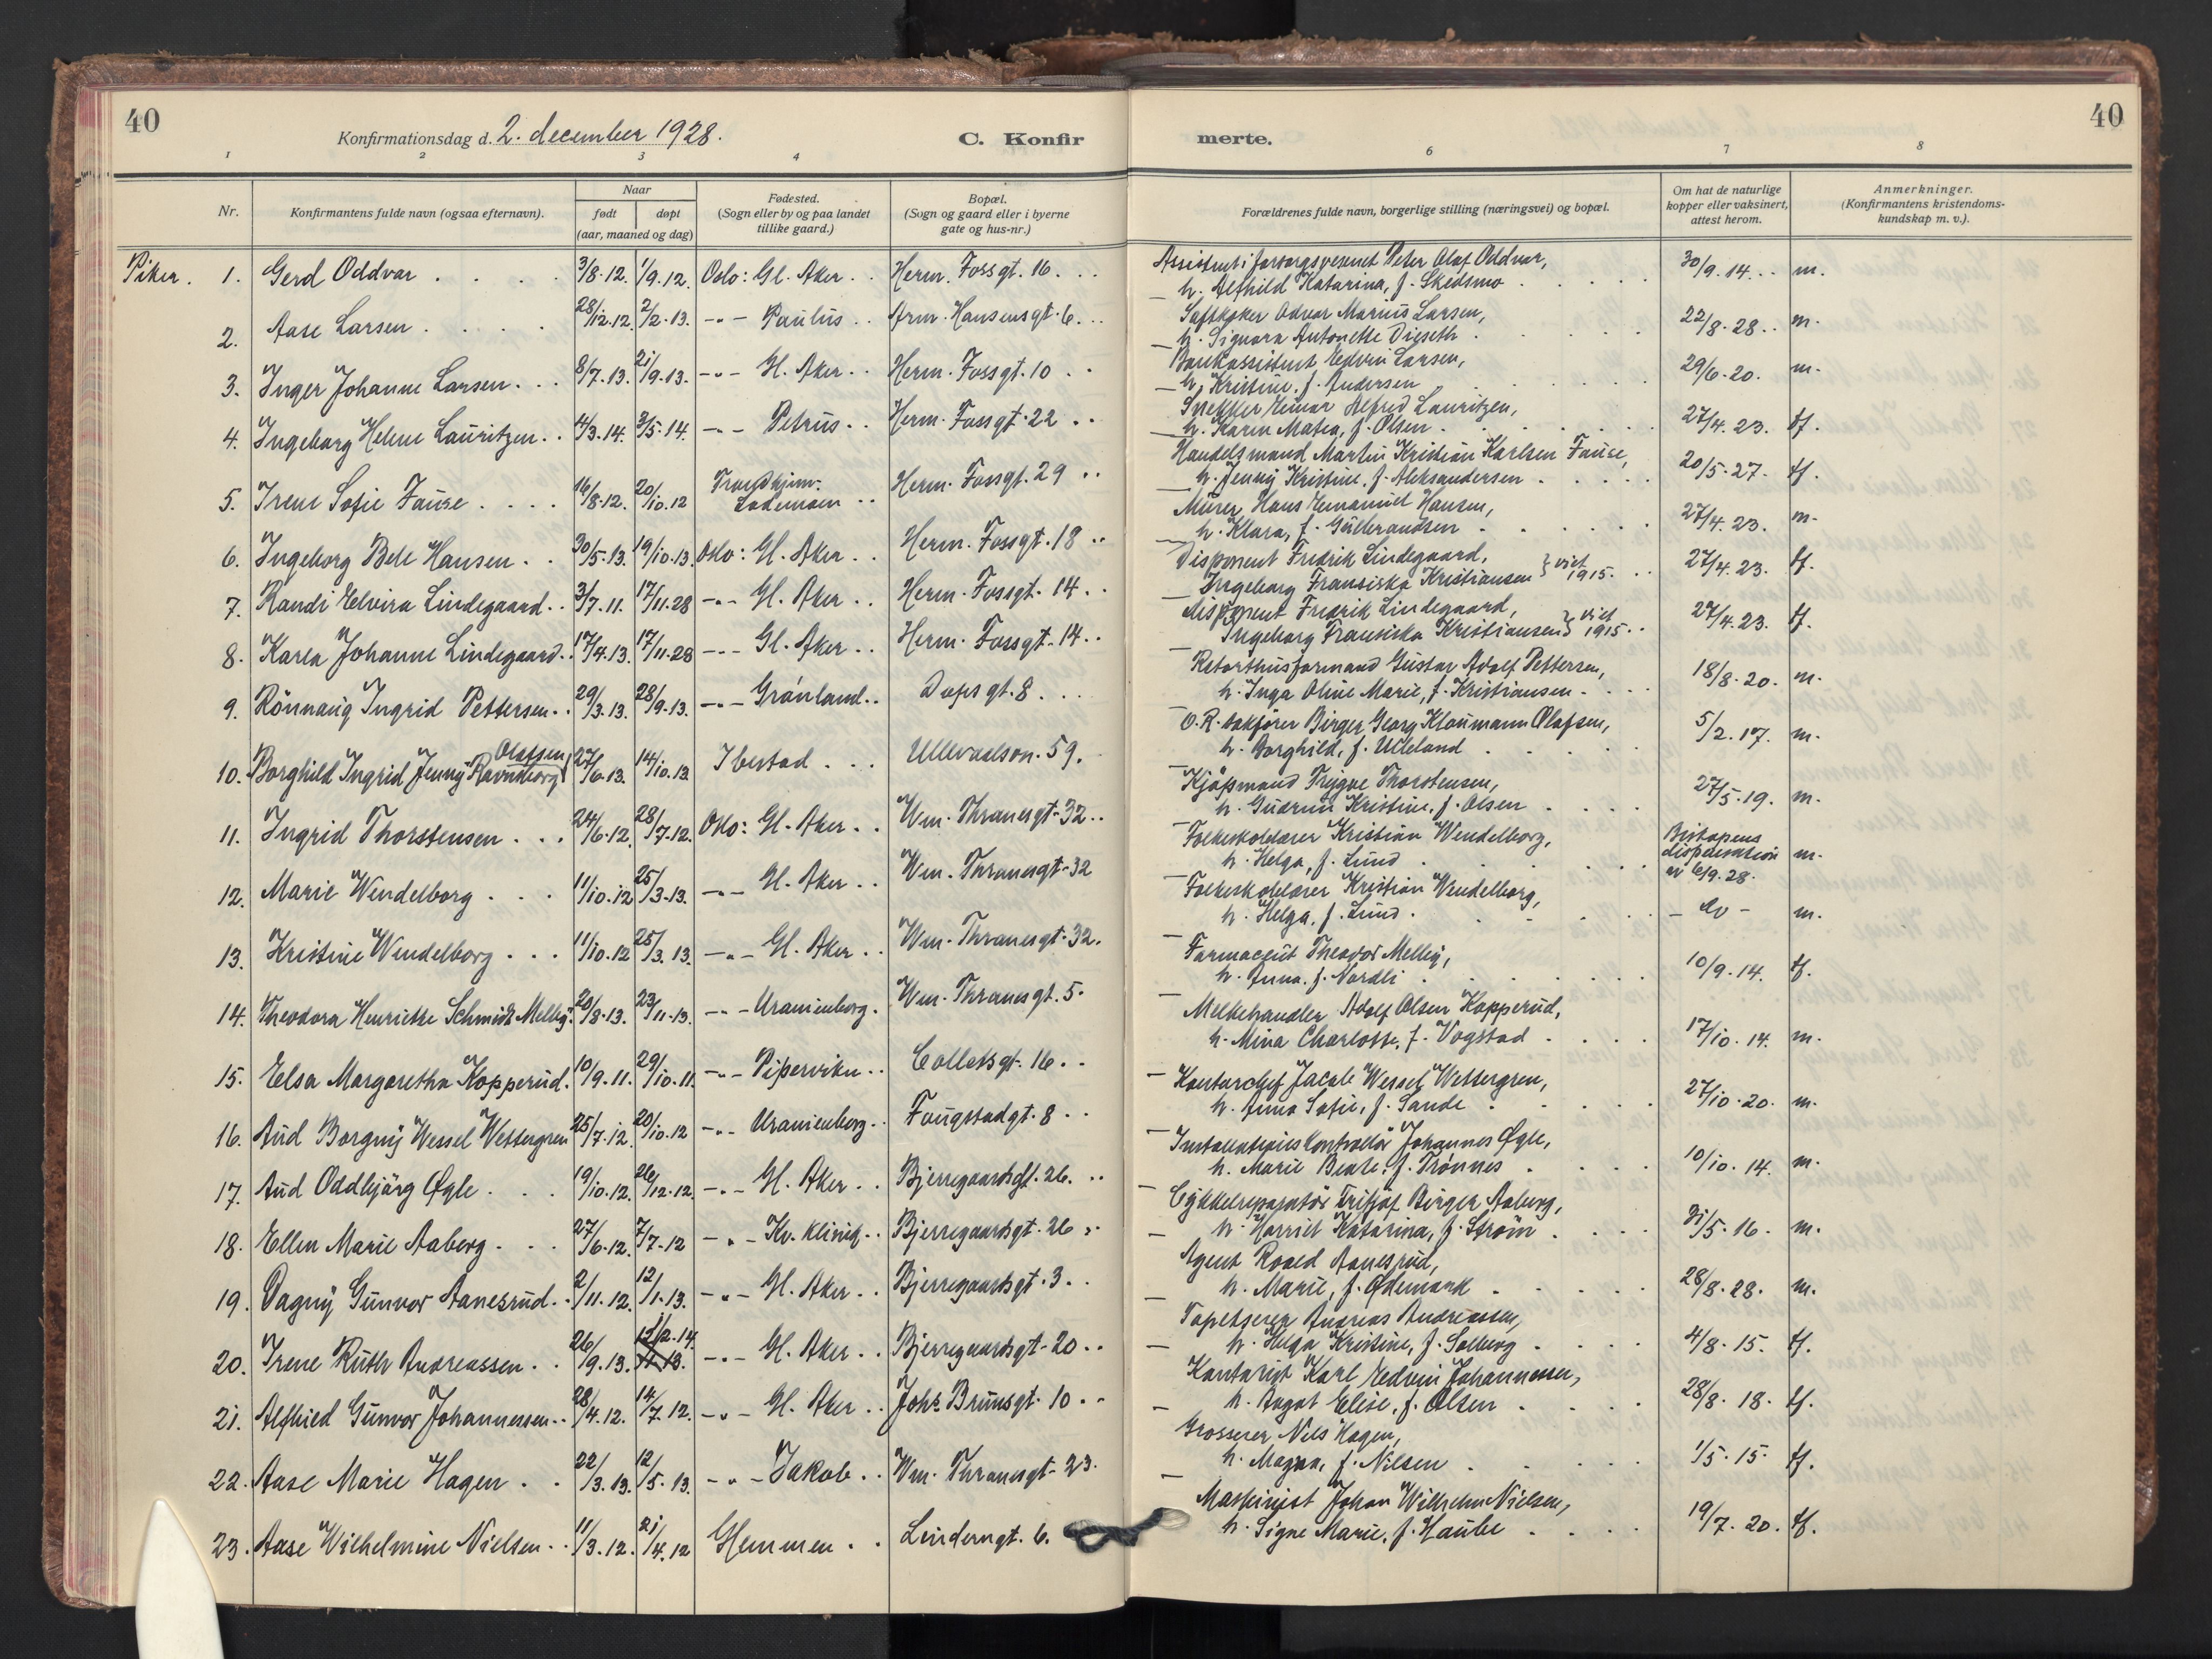 40
Konfirmationsdag d. 2. december 1928.
C. Konfir
merte.
40
1 2 3 4 6 7 8
Nr.
Konfirmantens fulde navn (ogsaa efternavn).
Naar
født
døpt
(aar, maaned og dag)
Fødested.
(Sogn eller by og paa landet
tillike gaard.)
Bopæl.
(Sogn og gaard eller i byerne
gate og hus-nr.)
Forældrenes fulde navn, borgerlige stilling (næringsvei) og bopæl.
Om hat de naturlige
kopper eller vaksinert,
attest herom.
Anmerkninger.
(Konfirmantens kristendoms-
kundskap m. v.).
Piker. 1. Gerd Oddvar . . . . 3/8.12. 1/9.12. Oslo: Gl. Aker . . Herm. Fossgt. 16. . .
Assistent i forsorgsvesenet Peter Olaf Oddvar,
h. Alfhild Katarina, f. Skedsmo . . . 30/9.14. . . m.
2. Aase Larsen . . . . 28/12.12. 2/2.13. -"- Paulus . . Arm. Hansensgt. 6. . .
Saftkoker Odvar Marius Larsen,
h. Signora Antonette Dieseth . . . 22/8.28. . m.
3. Inger Johanne Larsen . . . 8/7.13. 21/9.13. -"- Gl. Aker . . Herm. Fossgt. 10 . .
Bankassistent Edvin Larsen,
h. Kristine, f. Andersen . . . 29/6.20. m.
4. Ingeborg Helene Lauritzen . . 4/3.14. 3/5.14. -"- Petrus . . Herm. Fossgt. 22 . .
Snekker Einar Alfred Lauritzen,
h. Karen Matea, f. Olsen . . . 27/4.23. tf.
5. Irene Sofie Fause . . . . 16/8.12. 20/10.12 Trondhjem: Lademoen . . Herm. Fossgt. 29 . .
Handelsmand Martin Kristian Karlsen Fause,
h. Jenny Kristine, f. Aleksandersen . . . 20/5.27. tf.
6. Ingeborg Bele Hansen . . 30/5.13. 19/10.13. Oslo: Gl. Aker . . Herm. Fossgt. 18 . .
Murer Hans Emanuel Hansen,
h. Klara, f. Gulbrandsen . . . 27/4.23. m.
7. Randi Elvira Lindegaard . . 3/7.11. 17/11.28 -"- Gl. Aker . . Herm. Fossgt. 14 . .
Disponent Fredrik Lindegaard,
Ingeborg Fransiska Kristiansen } viet 1915. . . 27/4.23. tf.
8. Karla Johanne Lindegaard . . 17/4.13. 17/11.28 -"- Gl. Aker . . Herm. Fossgt. 14 . .
Disponent Fredrik Lindegaard,
Ingeborg Fransiska Kristiansen } viet 1915. . . 27/4.23. tf.
9. Rönnaug Ingrid Pettersen . . 29/3.13. 28/9.13. -"- Grönland . . Dopsgt. 8. . .
Retorthusformand Gustav Adolf Pettersen,
h. Inga Oline Marie, f. Kristiansen . . . 18/8.20. m.
Olafsen,
10. Borghild Ingrid Jenny Ravneborg 27/6.13. 14/10.13 Ibestad . . . Ullevaalsvn. 59.
O.R. sakförer Birger Georg Klaumann Olafsen,
h. Borghild, f. Ulleland . . . 5/2.17. m.
11. Ingrid Thorstensen . . . 24/6.12. 28/7.12. Oslo: Gl. Aker . . Wm. Thranesgt. 32 . .
Kjöpmand Trygve Thorstensen,
h. Gudrun Kristine, f. Olsen . . . 27/5.19. m.
12. Marie Wendelborg . . . 11/10.12 25/3.13. -"- Gl. Aker . . Wm. Thranesgt. 32
Folkeskolelærer Kristian Wendelborg,
h. Helga, f. Lund . . . Biskopens dispensation av 6/9.28. m.
13. Kristine Wendelborg . . . 11/10.12 25/3.13. -"- Gl. Aker . . Wm. Thranesgt. 32.
Folkeskolelærer Kristian Wendelborg,
h. Helga, f. Lund . . . - do - m.
14. Theodora Henriette Schmidt Melleij. 20/8.13. 23/11.13. -"- Uranienborg. Wm. Thranesgt. 5.
Farmaceut Theodor Melleij,
h. Anna, f. Nordli . . . 10/9.14. tf.
15. Elsa Margaretha Kopperud. 10/9.11. 29/10.11. -"- Piperviken . . Colletsgt. 16 . .
Melkehandler Adolf Olsen Kopperud,
h. Mina Charlotte, f. Vogstad . . . 17/10.14. m.
16. Aud Borgny Wessel Wettergren 25/7.12. 20/10.12 -"- Uranienborg . . Fougstadgt. 8 . .
Kontorchef Jacob Wessel Wettergren,
h. Anna Sofie, f. Sande . . . 27/10.20. m.
17. Aud Oddbjörg Øgle . . . 19/10.12. 26/12.12. -"- Gl. Aker . . Bjerregaardsgt. 26. . .
Installationskontrollör Johannes Øgle,
h. Marie Beate, f. Trönnes . . . 10/10.14. m.
18. Ellen Marie Aaberg . . . 27/6.12. 7/7.12 -"- Kv. klinik . . Bjerregaardsgt. 26 . .
Cykkelreparatör Fritjof Birger Aaberg,
h. Harriet Katarina, f. Ström . . . 31/5.16. m.
19. Dagny Gunvor Aanesrud . . 2/11.12. 12/1.13. -"- Gl. Aker . . Bjerregaardsgt. 3. . .
Agent Roald Aanesrud,
h. Marie, f. Ødemark . . . 28/8.28. m.
20. Irene Ruth Andreassen . . 26/9.13. 1/2.14. -"- Gl. Aker . . Bjerregaardsgt. 20 . .
Tapetserer Andreas Andreassen,
h. Helga Kristine, f. Solberg . . . 4/8.15. tf.
21. Alfhild Gunvor Johannessen . . 28/4.12. 14/7.12. -"- Gl. Aker . . Johs Brunsgt. 10 . .
Kontorist Karl Edvin Johannessen,
h. Aagot Elise, f. Olsen . . . 28/8.18. tf.
22. Aase Marie Hagen . . 22/3.13. 12/5.13. -"- Jakob . . Wm. Thranesgt. 23.
Grosserer Nils Hagen,
h. Magna, f. Nilsen . . . 1/5.15. tf.
23. Aase Wilhelmine Nielsen . . 11/3.12. 21/4.12 Hemmen . . Linderngt. 6.
Maskinist Johan Wilhelm Nielsen,
h. Signe Marie, f. Haube . . . 19/7.20. tf.